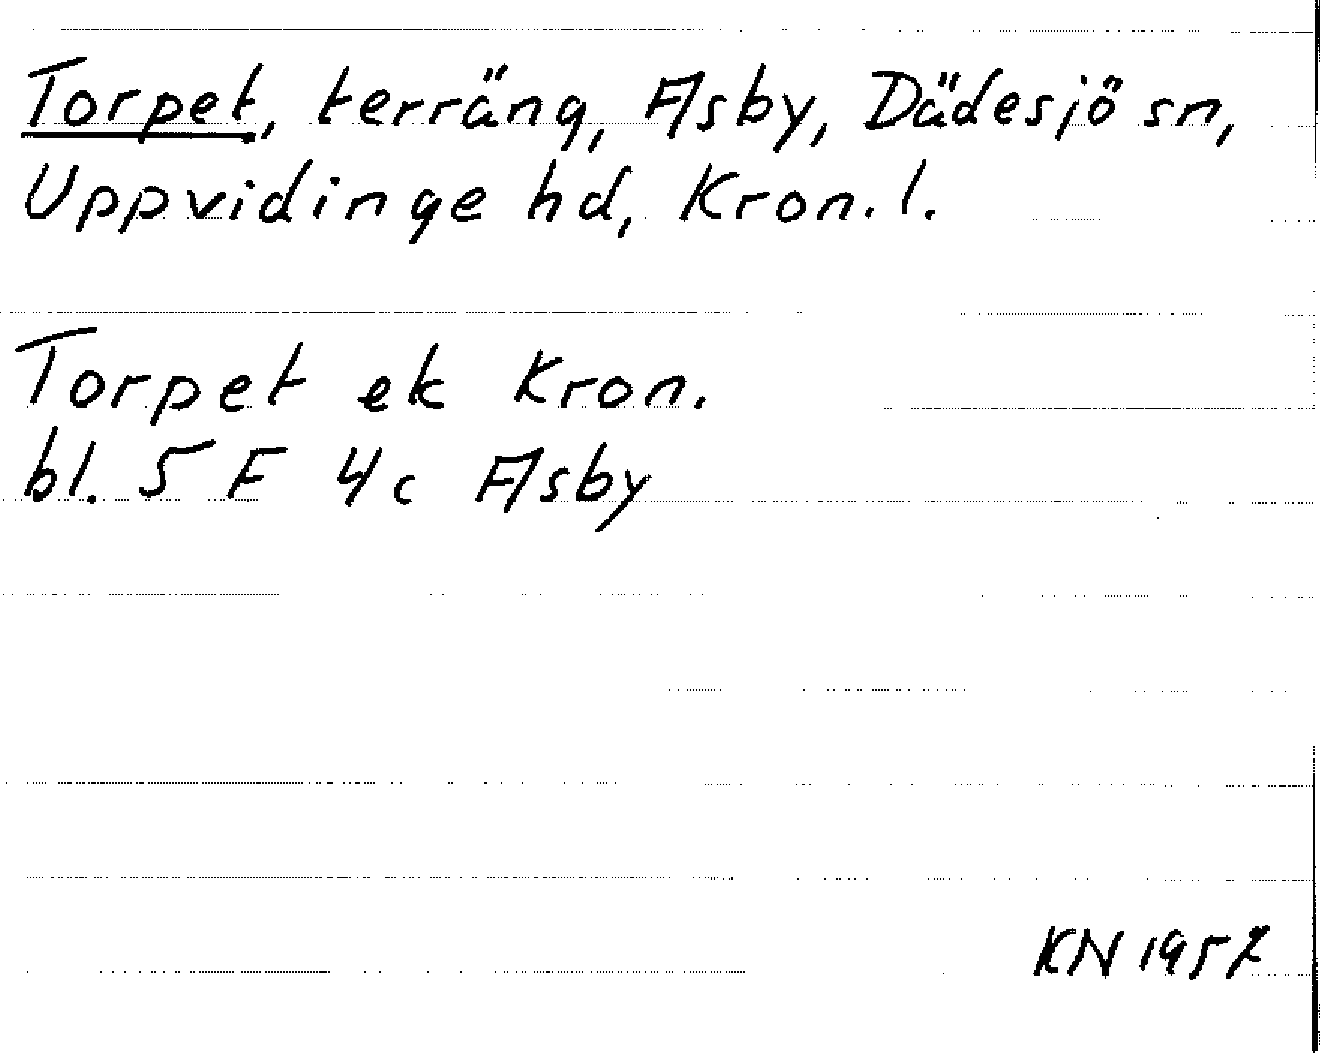 Torpet, terräng, Asby, Dädesjö sn,
Uppvidinge hd, Kron. l.
Torpet ek Kron.
bl. 5 F 4c Asby
KN 1957